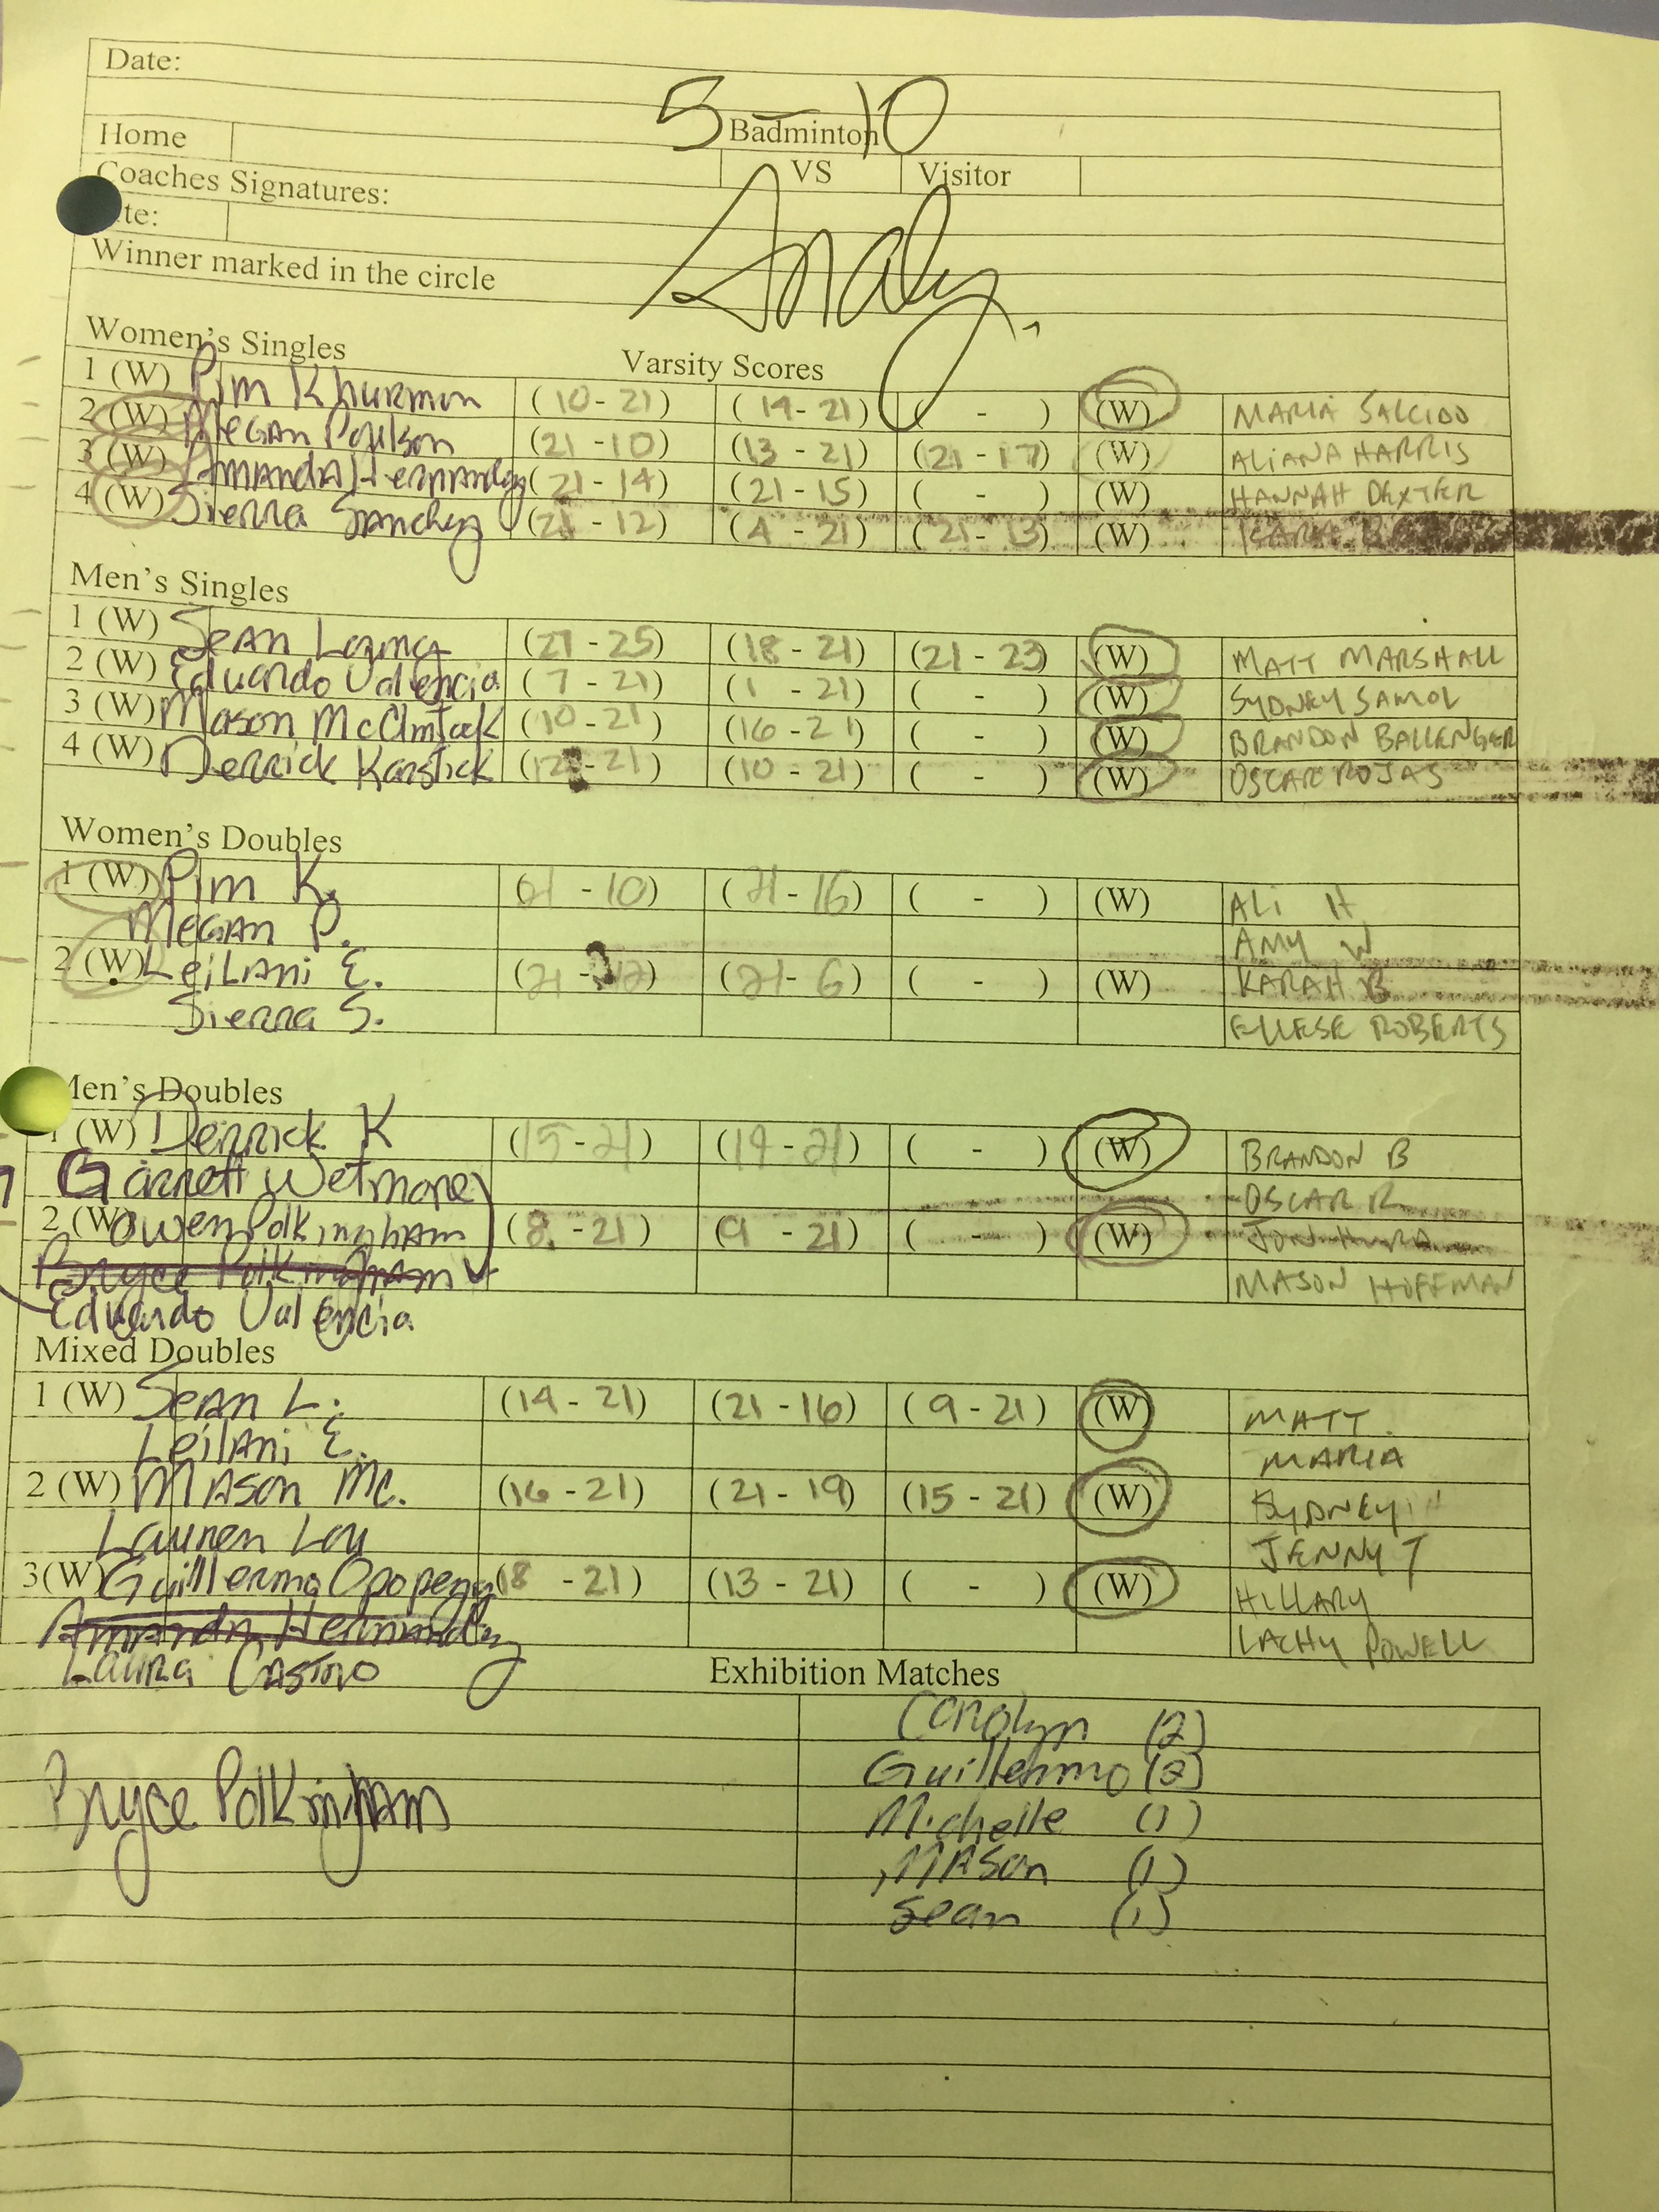 Date:
5-10
Badminton
Home VS Visitor
Coaches Signatures:
te:
Analy
Winner marked in the circle
Women's Singles
Varsity Scores
1 (W) Pim Khurmun (10-21) (14-21) ( - ) (W) MARIA SALCIDO
2 (W) Megan Poulson (21-10) (13-21) (21-17) (W) ALIANA HARRIS
3 (W) Amanda Hernandez (21-14) (21-15) ( - ) (W) HANNAH DEXTER
4 (W) Sierra Sanchez (21-12) (4-21) (21-13) (W)
Men's Singles
1 (W) Sean (21-25) (18-21) (21-23) (W) MATT MARSHALL
2 (W) Eduardo Valencia (7-21) (1-21) ( - ) (W) SYDNEY SAMOL
3 (W) Mason McClintock (10-21) (16-21) ( - ) (W) BRANDON BALLENGER
4 (W) Derrick Karstick (12-21) (10-21) ( - ) (W) OSCAR ROJAS
Women's Doubles
1 (W) Pim K. (21-10) (21-16) ( - ) (W) ALI H
Megan P. AMY W
2 (W) Leilani E. (21-12) (21-6) ( - ) (W) KARAH B
Sierra S. ELLESE ROBERTS
Men's Doubles
1 (W) Derrick K (15-21) (14-21) ( - ) (W) BRANDON B
Garrett Wetmore OSCAR R
2 (W) Owen Polkingham (8-21) (9-21) ( - ) (W) JON
Bryce Polkingham MASON HOFFMAN
Eduardo Valencia
Mixed Doubles
1 (W) Sean L. (14-21) (21-16) (9-21) (W) MATT
Leilani E. MARIA
2 (W) Mason Mc. (16-21) (21-19) (15-21) (W) SYDNEY
Lauren Lou JENNY T
3(W) Guillermo (18-21) (13-21) ( - ) (W) HILLARY
Amanda Hernandez LACHY POWELL
Laura Castro
Exhibition Matches
Carolyn (2)
Guillermo (2)
Bryce Polkingham Michelle (1)
Mason (1)
Sean (1)